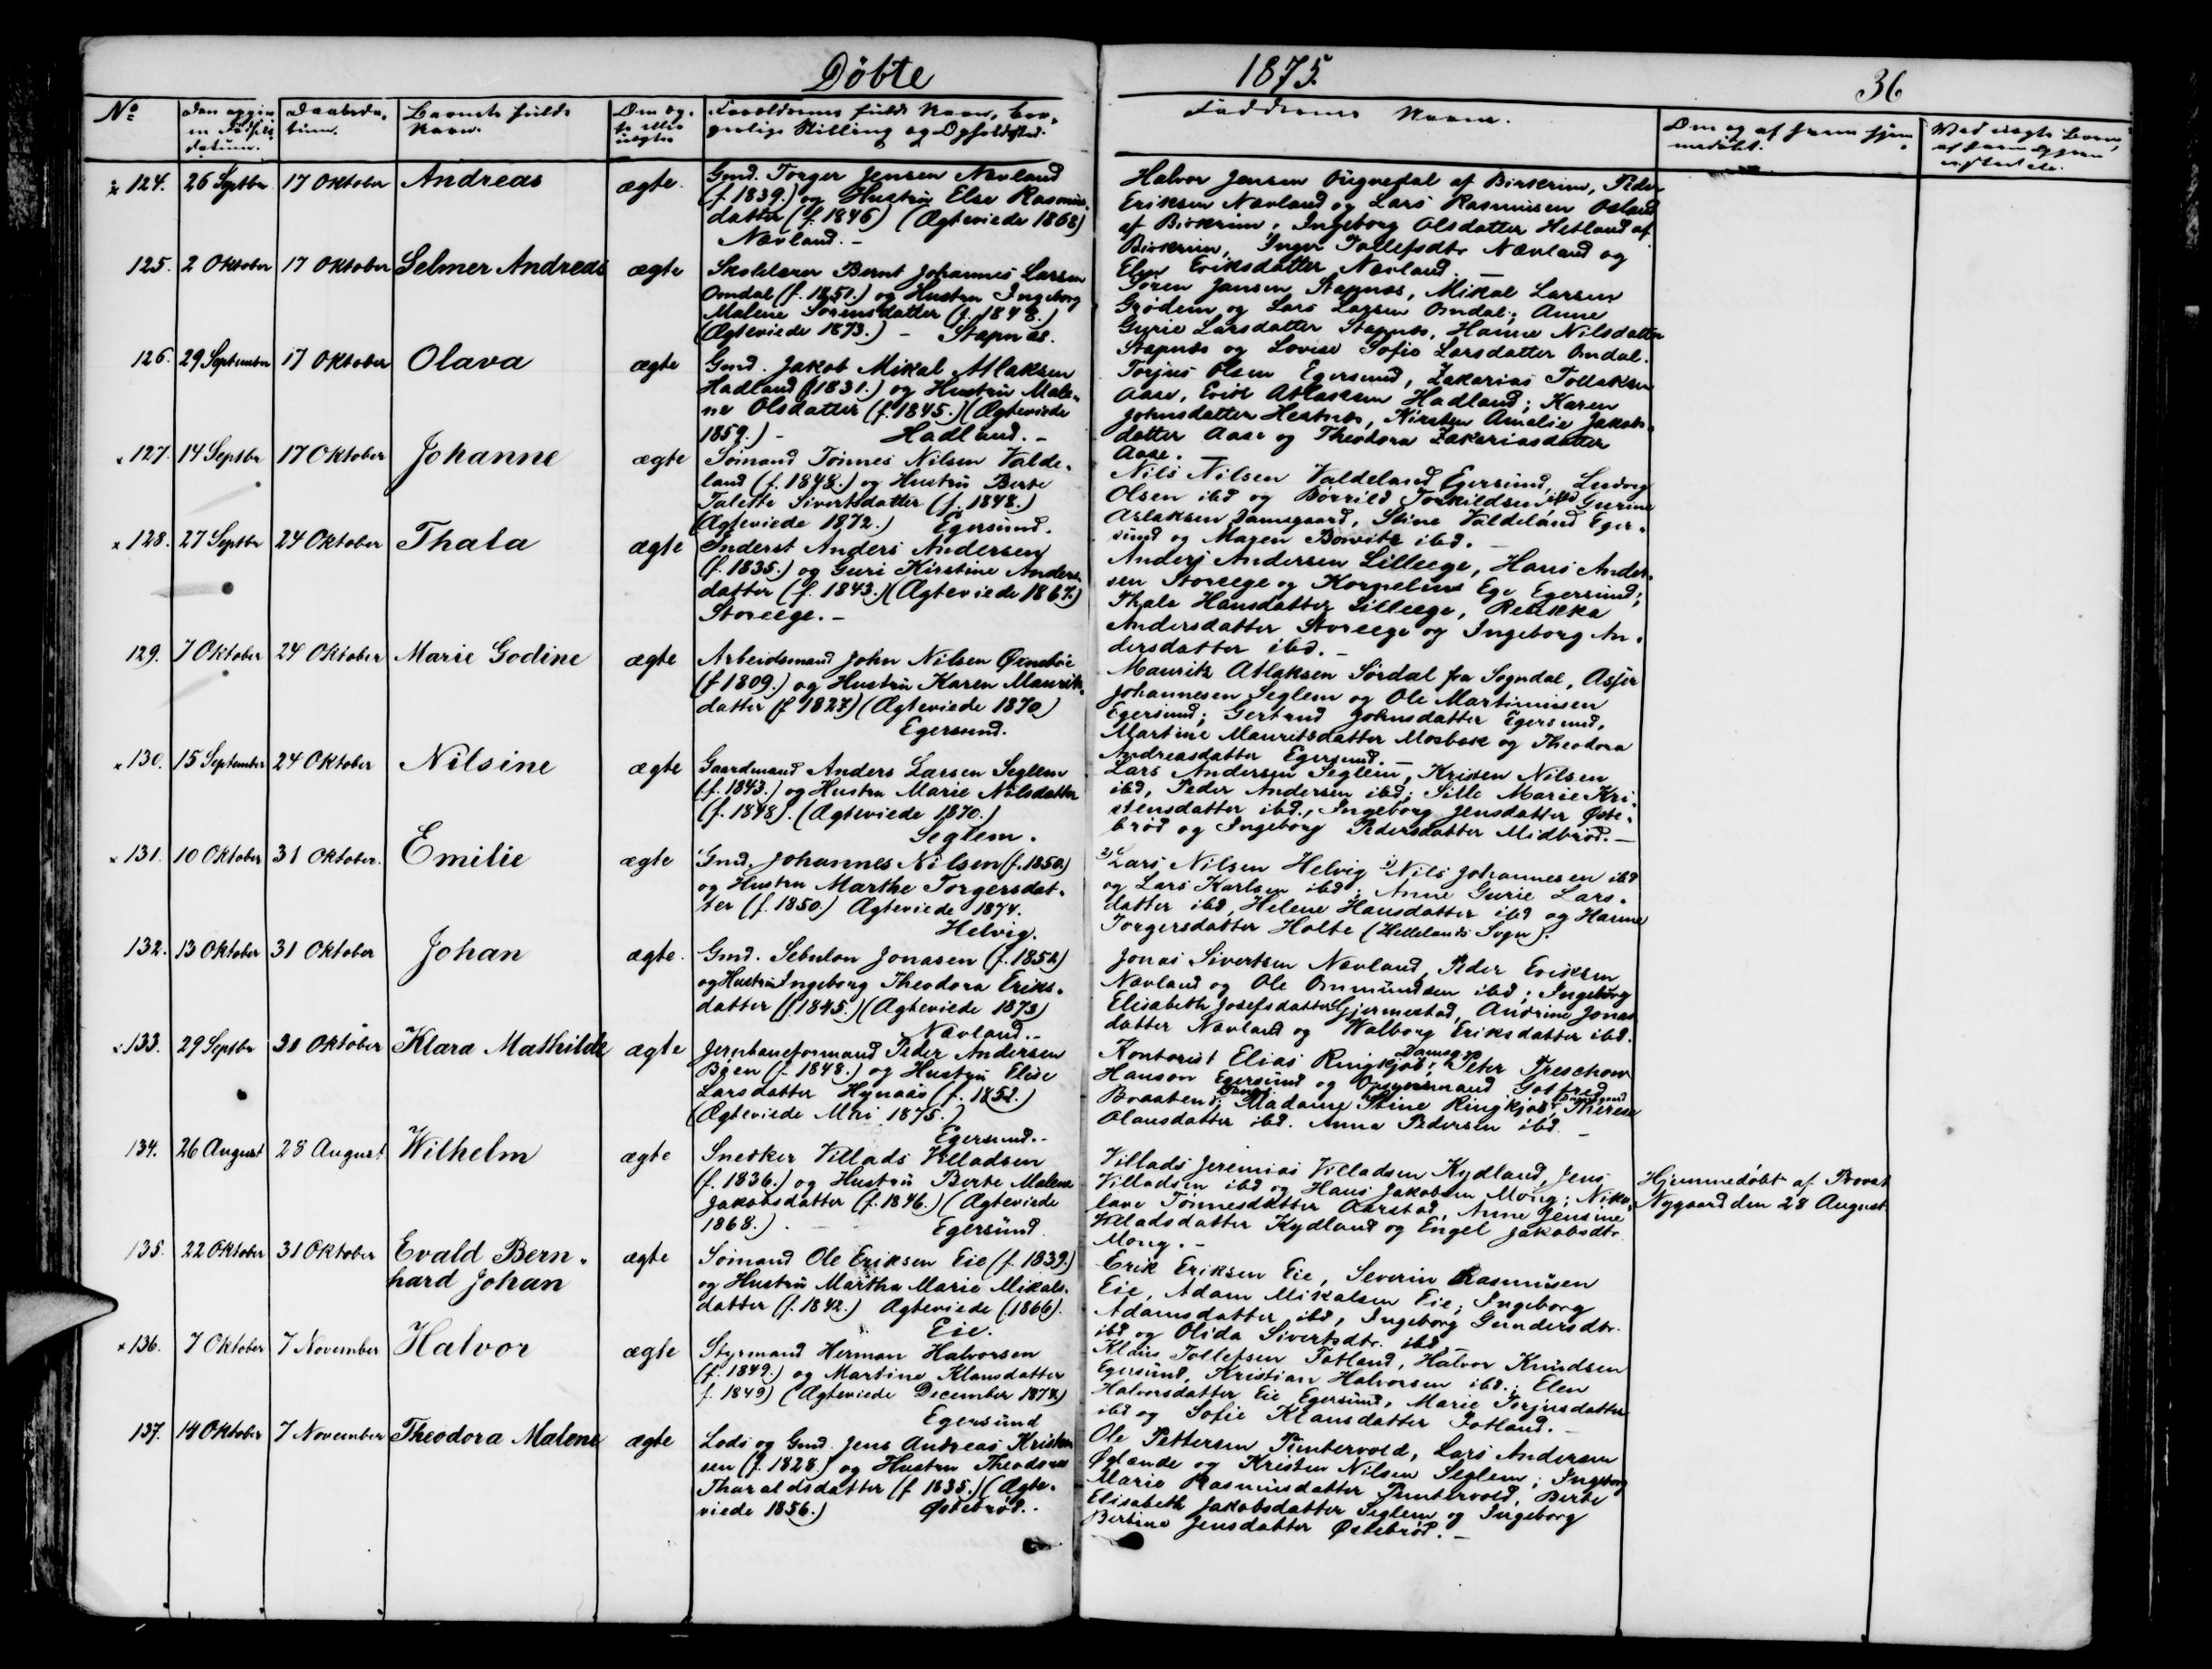 Döbte 1875. 36
No Den opgivne Fødselsdatum. Daabsdatum. Barnets fulde Navn. Om ægte eller uægte Forældrenes fulde Navn, borgerlige Stilling og Opholdssted. Faddernes Navne. Om og af hvem hjemmedøbt.
124. 26 Septbr 17 Oktober Andreas ægte.
Gmd. Torger Jensen Nævland
(f. 1839.) og Hustru Else Rasmus-
datter (f. 1846) (Ægteviede 1868)
Nævland. -
Halvor Jensen af Birkrim, Peder
Eriksen Nævland og Lars Rasmusen
af Birkrim, Ingeborg Olsdatter Hetland af
Birkrim, Inger Tollefsdtr Nævland og
Elen Eriksdatter Nævland. -
125. 2 Oktober 17 Oktober Selmer Andreas ægte
Skolelærer Bernt Johannes Larsen
Omdal (f. 1851.) og Hustru Ingeborg
Malene Sörensdatter (f. 1848.)
(Ægteviede 1873.) - Stapnæs.
Sören Jansen Stapnæs, Mikal Larsen
Grödem og Lars Larsen Omdal; Anne
Gurie Larsdatter Stapnæs, Hanne Nilsdatter
Stapnæs og Lovise Sofie Larsdatter Omdal.
126. 29 September 17 Oktober Olava ægte
Gmd. Jakob Mikal Atlaksen
Hadland (f 1831.) og Hustru Male-
ne Olsdatter (f. 1845.) (Ægteviede
1859.) - Hadland. -
Torjus Olsen Egersund, Zakarias Tollaksen
Aase, Erik Atlaksen Hadland; Karen
Johnsdatter Hestnæs, Kirsten Amalie Jakobs-
datter Aase og Theodora Zakariasdatter
Aase. -
127. 14 Septbr 17 Oktober Johanne ægte
Sömand Tönnes Nilsen Valde-
land (f. 1848.) og Hustru Berte
Talette Sivertsdatter (f. 1848.)
(Ægteviede 1872.) Egersund.
Nils Nilsen Valdeland Egersund, Ludvig
Olsen ibd og Börrild Torkildsen ibd; Gurine
Aslaksen Damsgaard, Stine Valdeland Eger-
sund og Magen ibd. -
128. 27 Septbr 24 Oktober Thala ægte
Inderst Anders Andersen
(f. 1835.) og Guri Kirstine Anders-
datter (f. 1843.) (Ægteviede 1867.)
Storeege. -
Anders Andersen Lilleege, Hans Ander-
sen Storeege og Kornelius Ege Egersund;
Thala Hansdatter Lilleege, Rebekka
Andersdatter Storeege og Ingeborg An-
dersdatter ibd. -
129. 7 Oktober 24 Oktober Marie Godine ægte
Arbeidsmand John Nilsen
(f 1809.) og Hustru Karen Maurits-
datter (f 1827) (Ægteviede 1870)
Egersund.
Mauritz Atlaksen Sördal fra Sogndal, Asser
Johannesen Seglem og Ole Martiniusen
Egersund; Gertrud Johnsdatter Egersund,
Martine Mauritsdatter Mosbæk og Theodora
Andreasdatter Egersund. -
130. 15 September 24 Oktober Nilsine ægte
Gaardmand Anders Larsen Seglem
(f. 1843.) og Hustru Marie Nilsdatter
(f. 1848). (Ægteviede 1870.)
Seglem.
Lars Andersen Seglem, Kristen Nilsen
ibd, Peder Andersen ibd; Sille Marie Kri-
stensdatter ibd., Ingeborg Jensdatter Øste-
bröd og Ingeborg Pedersdatter Midbröd. -
131. 10 Oktober 31 Oktober. Emilie ægte
Gmd. Johannes Nilsen (f. 1850.)
og Hustru Marthe Torgersdat-
ter (f. 1850.) Ægteviede 1874.
Helvig.
2) Lars Nilsen Helvig 1) Nils Johannesen ibd
og Lars Karlsen ibd; Anne Gurie Lars-
datter ibd, Helene Hansdatter ibd og Hanne
Torgersdatter Holte (Hellelands Sogn).
132. 13 Oktober 31 Oktober Johan ægte.
Gmd. Sebulon Jonasen (f. 1852)
og Hustru Ingeborg Theodora Eriks-
datter (f. 1845.) (Ægteviede 1873)
Nævland. -
Jonas Sivertsen Nævland, Peder Eriksen
Nævland og Ole Ommundsen ibd; Ingeborg
Elisabeth Josefsdatter Gjermestad, Andrine Jonas-
datter Nævland og Walborg Eriksdatter ibd.
133. 29 Septbr 31 Oktober Klara Mathilde ægte
Jernbaneformand Peder Andersen
Böen (f. 1848.) og Hustru Elise
Larsdatter (f. 1852.)
(Ægteviede Mai 1875.)
Egersund. -
Kontorist Elias Ringkjöb, Damsg. Peter Treschow
Hanson Egersund og Opsynsmand Gotfred
Braaten; Damsg. Madame Stine Ringkjöb Damsgaard, Therese
Olausdatter ibd. Anna Pedersen ibd. -
134. 26 August 28 August Wilhelm ægte
Snedker Villads Villadsen
(f. 1836.) og Hustru Berte Malene
Jakobsdatter (f. 1846.) (Ægteviede
1868.). - Egersund.
Villads Jeremias Villadsen Kydland, Jens
Villadsen ibd og Hans Jakobsen Mong; Niko-
lave Tönnesdatter Aarstad, Anne Jensine
Villadsdatter Kydland og Engel Jakobsdtr
Mong. -
Hjemmedöbt af Provst
Nygaard den 28 August
135. 22 Oktober 31 Oktober Evald Bern-
hard Johan ægte
Sömand Ole Eriksen Eie (f. 1839.)
og Hustru Martha Marie Mikals-
datter (f. 1842.) Ægteviede (1866).
Eie.
Erik Eriksen Eie, Severin Rasmusen
Eie, Adam Mikalsen Eie; Ingeborg
Adamsdatter ibd, Ingeborg Gundersdtr.
ibd og Olida Sivertsdtr. ibd. -
136. 7 Oktober 7 November Halvor ægte
Styrmand Herman Halvorsen
(f. 1849.) og Martine Klausdatter
f. 1849) (Ægteviede December 1874)
Egersund
Klaus Tollefsen Fotland, Halvor Knudsen
Egersund, Kristian Halvorsen ibd.; Elen
Halvorsdatter Eie Egersund, Marie Torjusdatter
ibd og Sofie Klausdatter Fotland. -
137. 14 Oktober 7 November Theodora Malene ægte
Lods og Gmd. Jens Andreas Kristen-
sen (f. 1828.) og Hustru Theodora
Tharaldsdatter (f 1835.) (Ægte-
viede 1856.) Østebröd. -
Ole Pettersen Puntervold, Lars Andersen
Øglænde og Kristen Nilsen Seglem; Ingeborg
Marie Rasmusdatter Puntervold, Berte
Elisabeth Jakobsdatter Seglem og Ingeborg
Bertine Jensdatter Østebröd. -